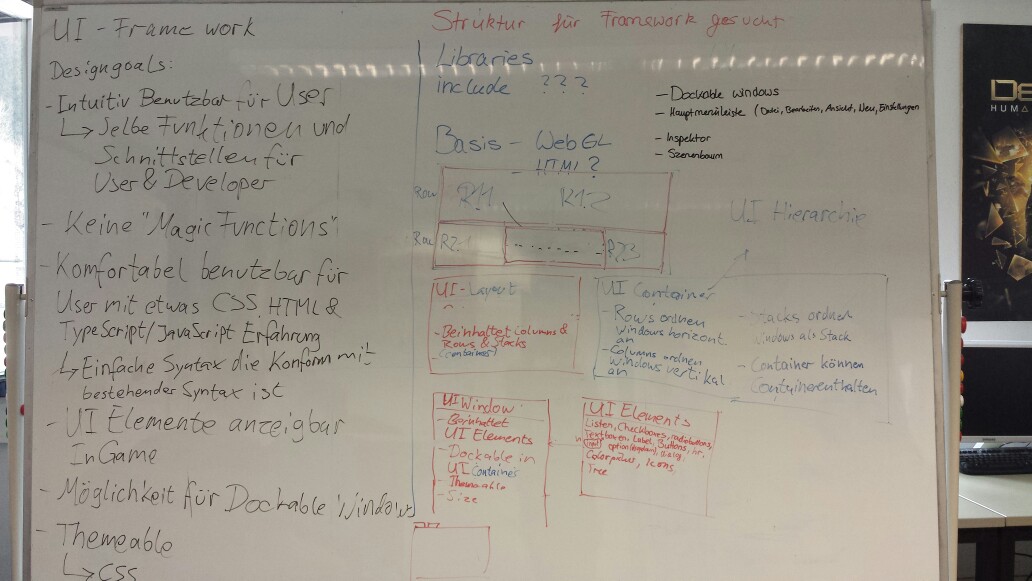 UI - Framework
Designgoals:
- Intuitiv Benutzbar für User
↳ Selbe Funktionen und
Schnittstellen für
User & Developer
- Keine "Magic Functions"
- Komfortabel benutzbar für
User mit etwas CSS, HTML &
TypeScript/JavaScript Erfahrung
↳ Einfache Syntax die Konform mit
bestehender Syntax ist
- UI Elemente anzeigbar
InGame
- Möglichkeit für Dockable Windows
- Themeable
↳ CSS
Struktur für Framework gesucht
Libraries
include ???
Basis - WebGL
- HTML?
- Dockable windows
- Hauptmenüleiste (Datei, Bearbeiten, Ansicht, Neu, Einstellungen
- Inspektor
- Szenenbaum
Row R1.1 R1.2
Row R2.1 R2.3
UI Hierarchie
UI-Layout
- Beinhaltet Columns &
Rows & Stacks
(Container)
UI Container
- Rows ordnen
windows horizont.
an
- Columns ordnen
windows vertikal
an
- Stacks ordnen
windows als Stack
- Container können
Container enthalten
UI Window
- Beinhaltet
UI Elements
- Dockable in
UI Containes
- Themeable
- Size
UI Elements
Listen, Checkboxes, radiobuttons,
Textboxen, Label, Buttons, hr,
Colorpicker, Icons,
Tree
De
HUMA